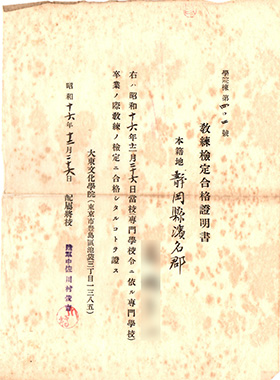 教練檢定合格證明書
本籍地 靜岡縣濱名郡
右ハ昭和十六年十二月二十六日當校(專門學校令ニ依ル專門學校)
卒業ノ際教練ノ檢定ニ合格シタルコトヲ證ス
大東文化學院(東京市豊島區池袋三丁目一三八五)
昭和十六年十二月二十六日 配屬將校
陸軍中佐